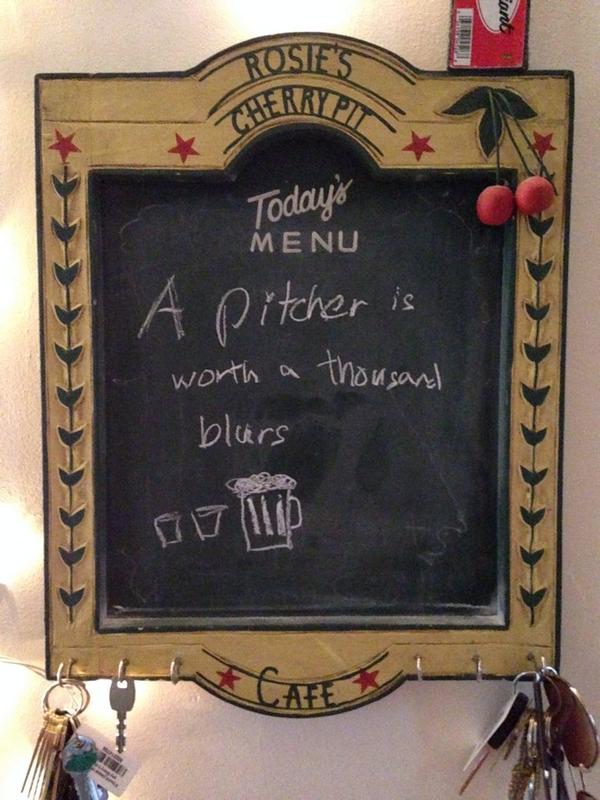 ROSIE'S
CHERRY PIT
Today's
MENU
A pitcher is
worth a thousand
blurs
CAFE